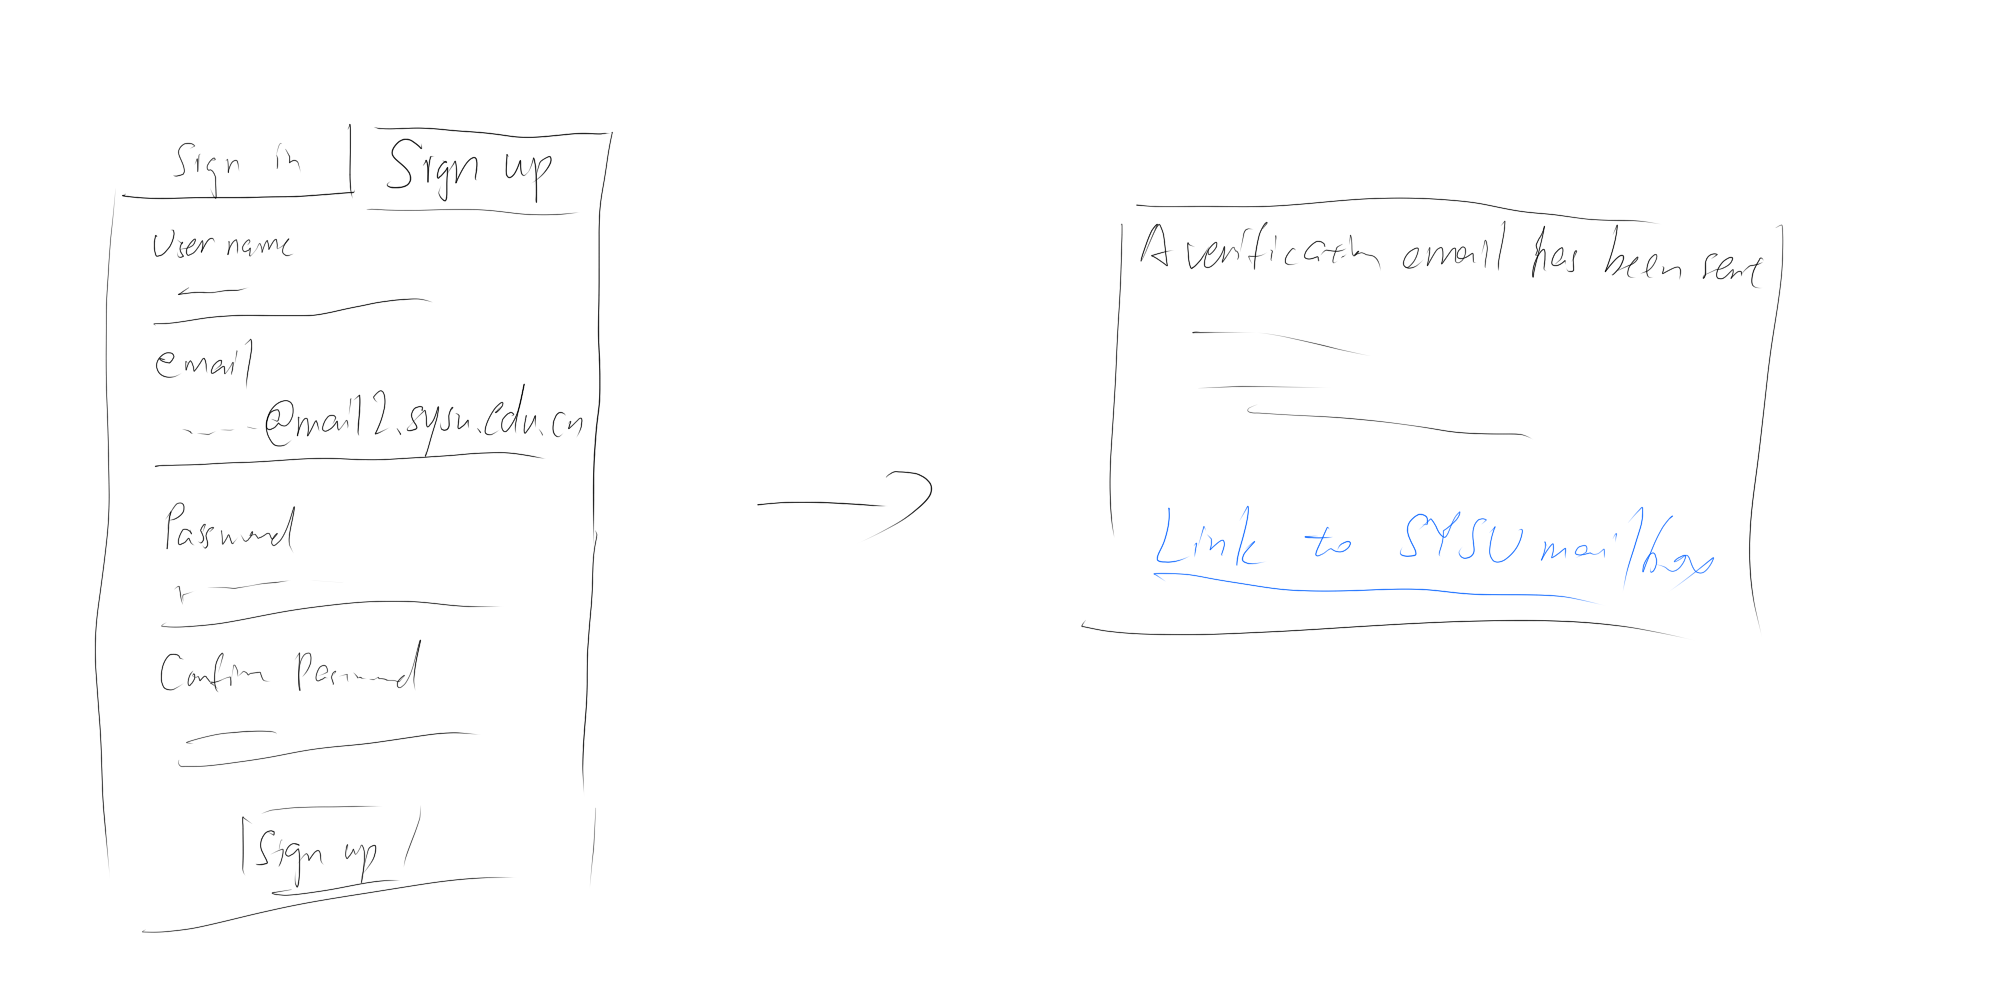 Sign in
Sign up
User name
email
@mail2.sysu.edu.cn
Password
Confirm Password
Sign up
A verification email has been sent
Link to SYSU mailbox